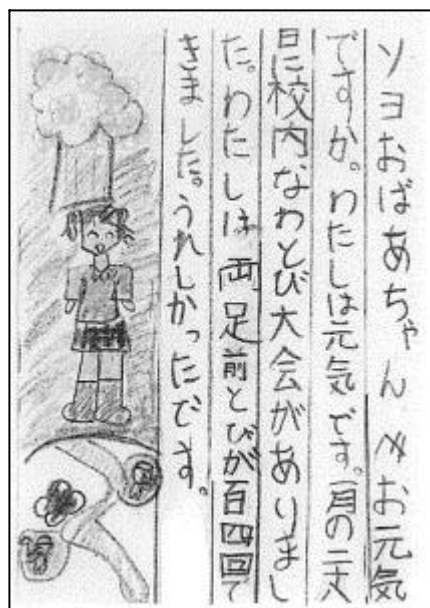 ソヨおばあちゃんへお元気
ですか。わたしは元気です。一月の二十八
日に校内なわとび大会がありまし
た。わたしは、両足前とびが百四回で
きました。うれしかったです。